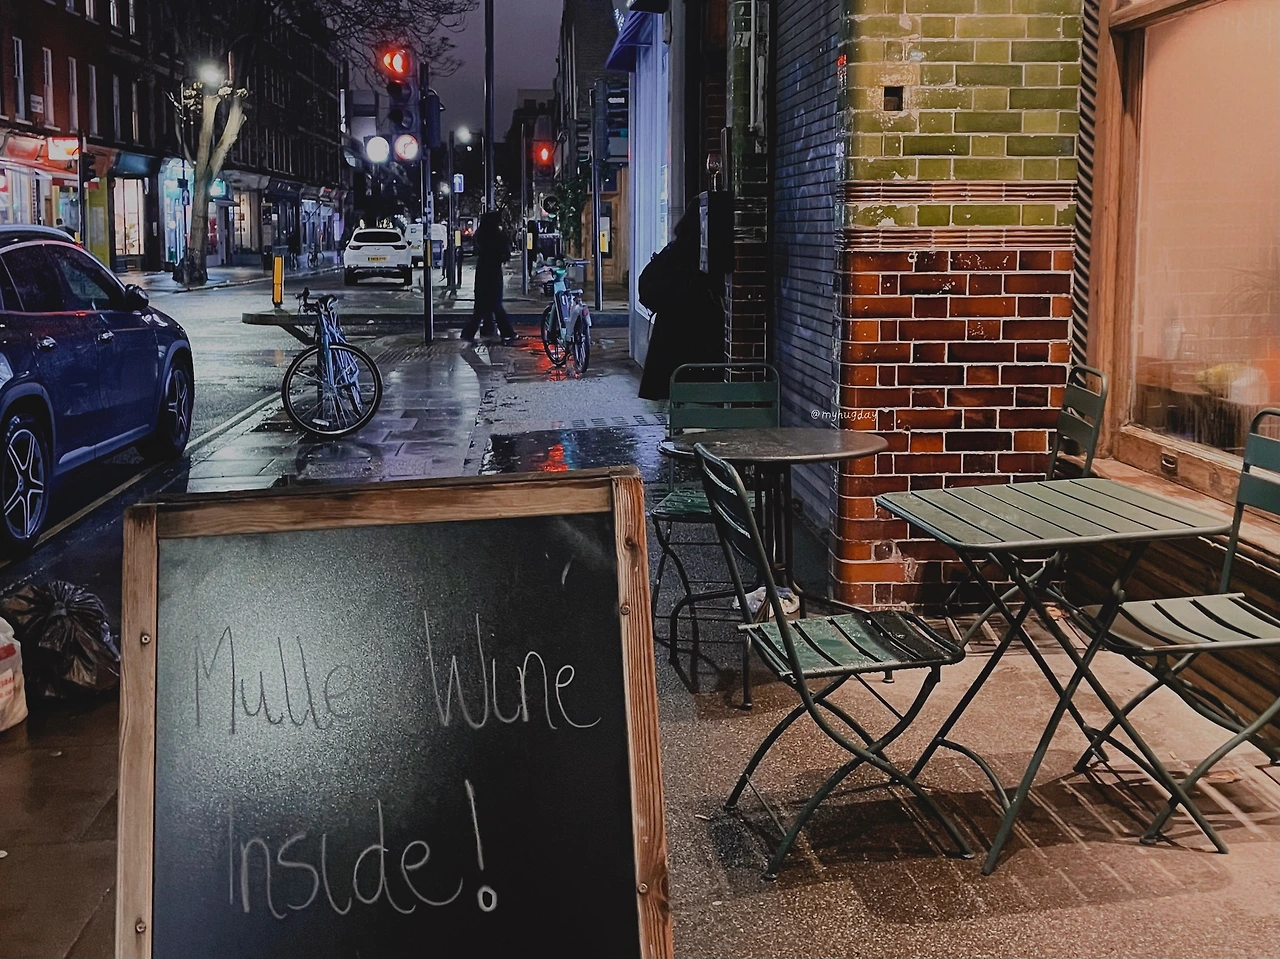 @myhugday
Mulle Wine
Inside!